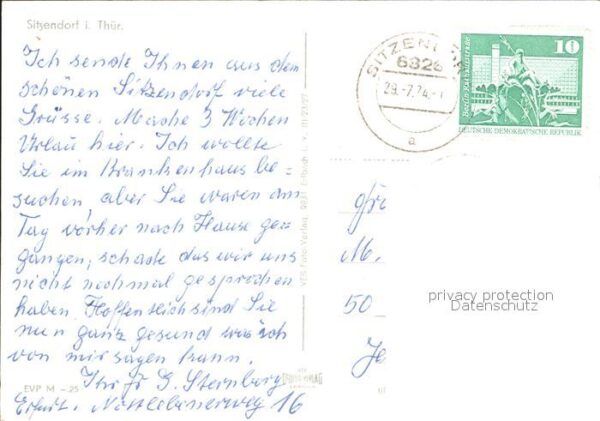 Sitzendorf i. Thür.
Ich sende Ihnen aus dem
schönen Sitzendorf viele
Grüsse. Mache 3 Wochen
Urlau hier. Ich wollte
Sie im Krankenhaus be-
suchen, aber Sie waren am
Tag vorher nach Hause ge-
gangen, schade das wir uns
nicht nochmal gesprochen
haben. Hoffentlich sind Sie
nun ganz gesund was ich
von mir sagen kann.
Ihr Fr G. Sternberg
Erfurt. Nottlebenerweg 16
EVP M –25
SITZEN
6826
29.-7.74.-
a
10
Berlin, Rathausstraße
DEUTSCHE DEMOKRATISCHE REPUBLIK
Gr
M.
50
Je
privacy protection
Datenschutz